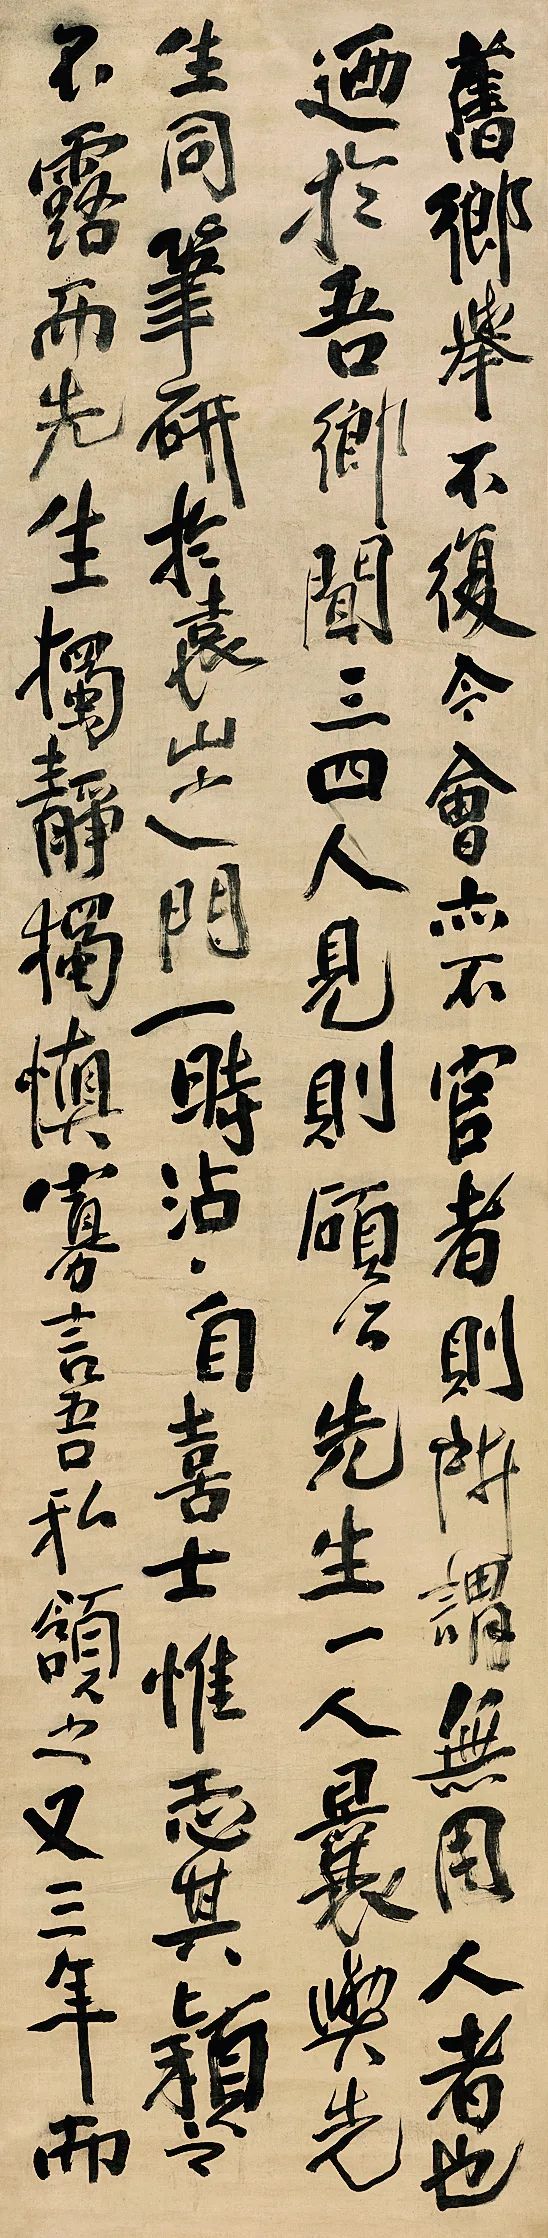 舊鄉舉不復令會亦不官者則所謂無用人者也
迺於吾鄉聞三四人見則頎公先生一人曩與先
生同筆研於袁山之門一時沾沾自喜士惟恐其穎之
不露而先生獨靜獨慎寡言吾私頷之又三年而